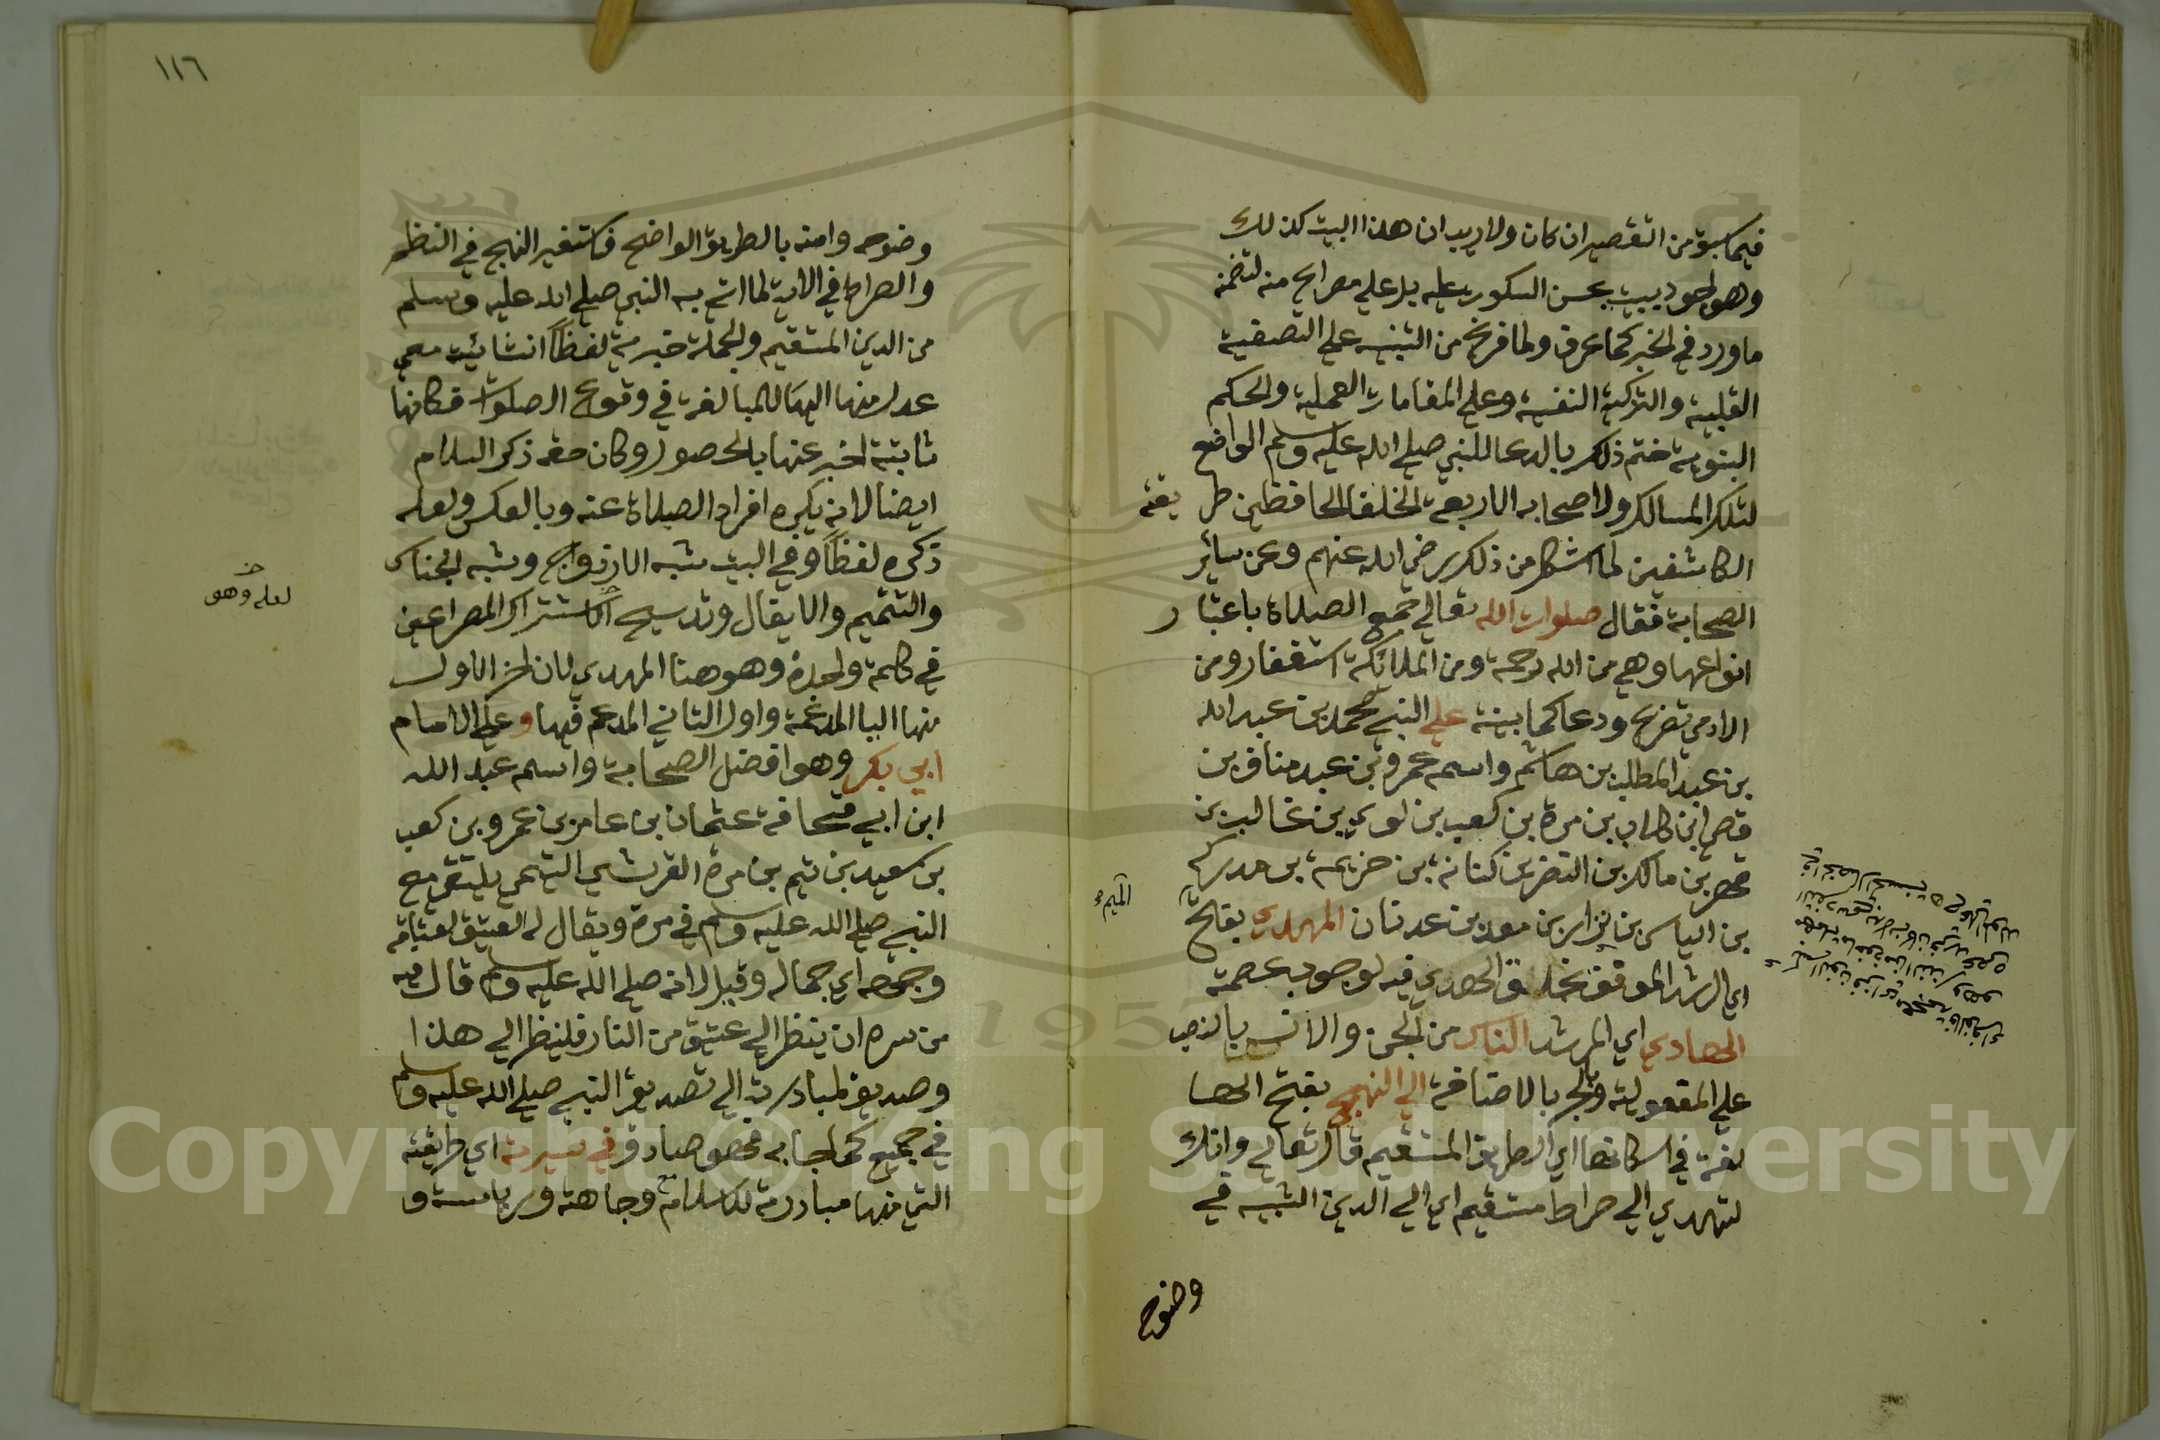 فيما سبق من التقصير ان كان ولا ريب ان هذا البيت كذلك
وهو اجود بيت يحسن السكوت عليه بل علي مصراع منه لتضمنه
ما ورد في الخبر كما عرف ولما فرغ من التنبيه علي التصفية
القلبية والتزكية النفسية وعلي المقامات العملية والحكم
النبوية ختم ذلك بالدعا للنبي صلي الله عليه وسلم الواضع
لتلك المسالك ولاصحابه الاربعة الخلفا الحافظين طريقته
الكاشفين لما اشكل من ذلك رضي الله عنهم وعن سائر
الصحابة فقال صلوات الله تعالي جمع الصلاة باعتبار
انواعها وهي من الله رحمة ومن الملائكة استغفار ومن
الادمي تضرع ودعا كما بينته علي النبي محمد بن عبد الله
بن عبد المطلب بن هاشم واسمه عمرو بن عبد مناف بن
قصي ابن كلاب بن مرة بن كعب بن لوي بن غالب بن
فهر بن مالك بن النضر بن كنانة بن خزيمة بن مدركة
بن الياس بن نزار بن معد بن عدنان المهدي بفتح
الميم
اي الرشد الموفق بخلق الهدي فيه لوجوب عصمته
الهادي اي المرشد الناس من الجن والانس بالنصب
علي المفعولية والجر بالاضافة الي النهج بفتح الها
لغة في اسكانها اي الطريق المستقيم قال تعالي وانك
لتهدي الي صراط مستقيم اي الي الدين الشبيه في
وضوح
١١٦
وضوحه وامنه بالطريق الواضح فاستعير النهج في النظم
والصراط في الاية لما اتي به النبي صلي الله عليه وسلم
من الدين المستقيم والجملة خبرية لفظاً انشائية معني
عدل منها اليها للمبالغة في وقوع الصلوات فكانها
ثابتة اخبر عنها بالحصول وكان حقه ذكر السلام
ايضا لانه يكره افراد الصلاة عنه وبالعكس ولعله
ذكره لفظاً وفي البيت شبه الازدواج وشبه الجناس
والتتميم والا يقال وتدبيج اشتراك المصراعين
لعله وهو
في كلمة واحدة وهو هنا المهدي لان اخر الاول
منها اليا المدغمة واول الثاني المدغم فيها وعلي الامام
ابي بكر وهو افضل الصحابة واسمه عبد الله
ابن ابي قحافة عثمان بن عامر بن عمرو بن كعب
بن سعيد بن تيم بن مرة القرشي التيمي يلتقي مع
النبي صلي الله عليه وسلم في مرة ويقال له العتيق لعتاقة
وجهه اي جماله وقيل لانه صلي الله عليه وسلم قال فيه
من سره ان ينظر الي عتيق من النار فلينظر الي هذا
وصديق لمبادرته الي تصديق النبي صلي الله عليه وسلم
في جميع كما جا به فهو صادق في سيرته اي طريقته
التي منها مبادرته للاسلام وجاهته ورياسته و
Copyright © King Saud University
1957